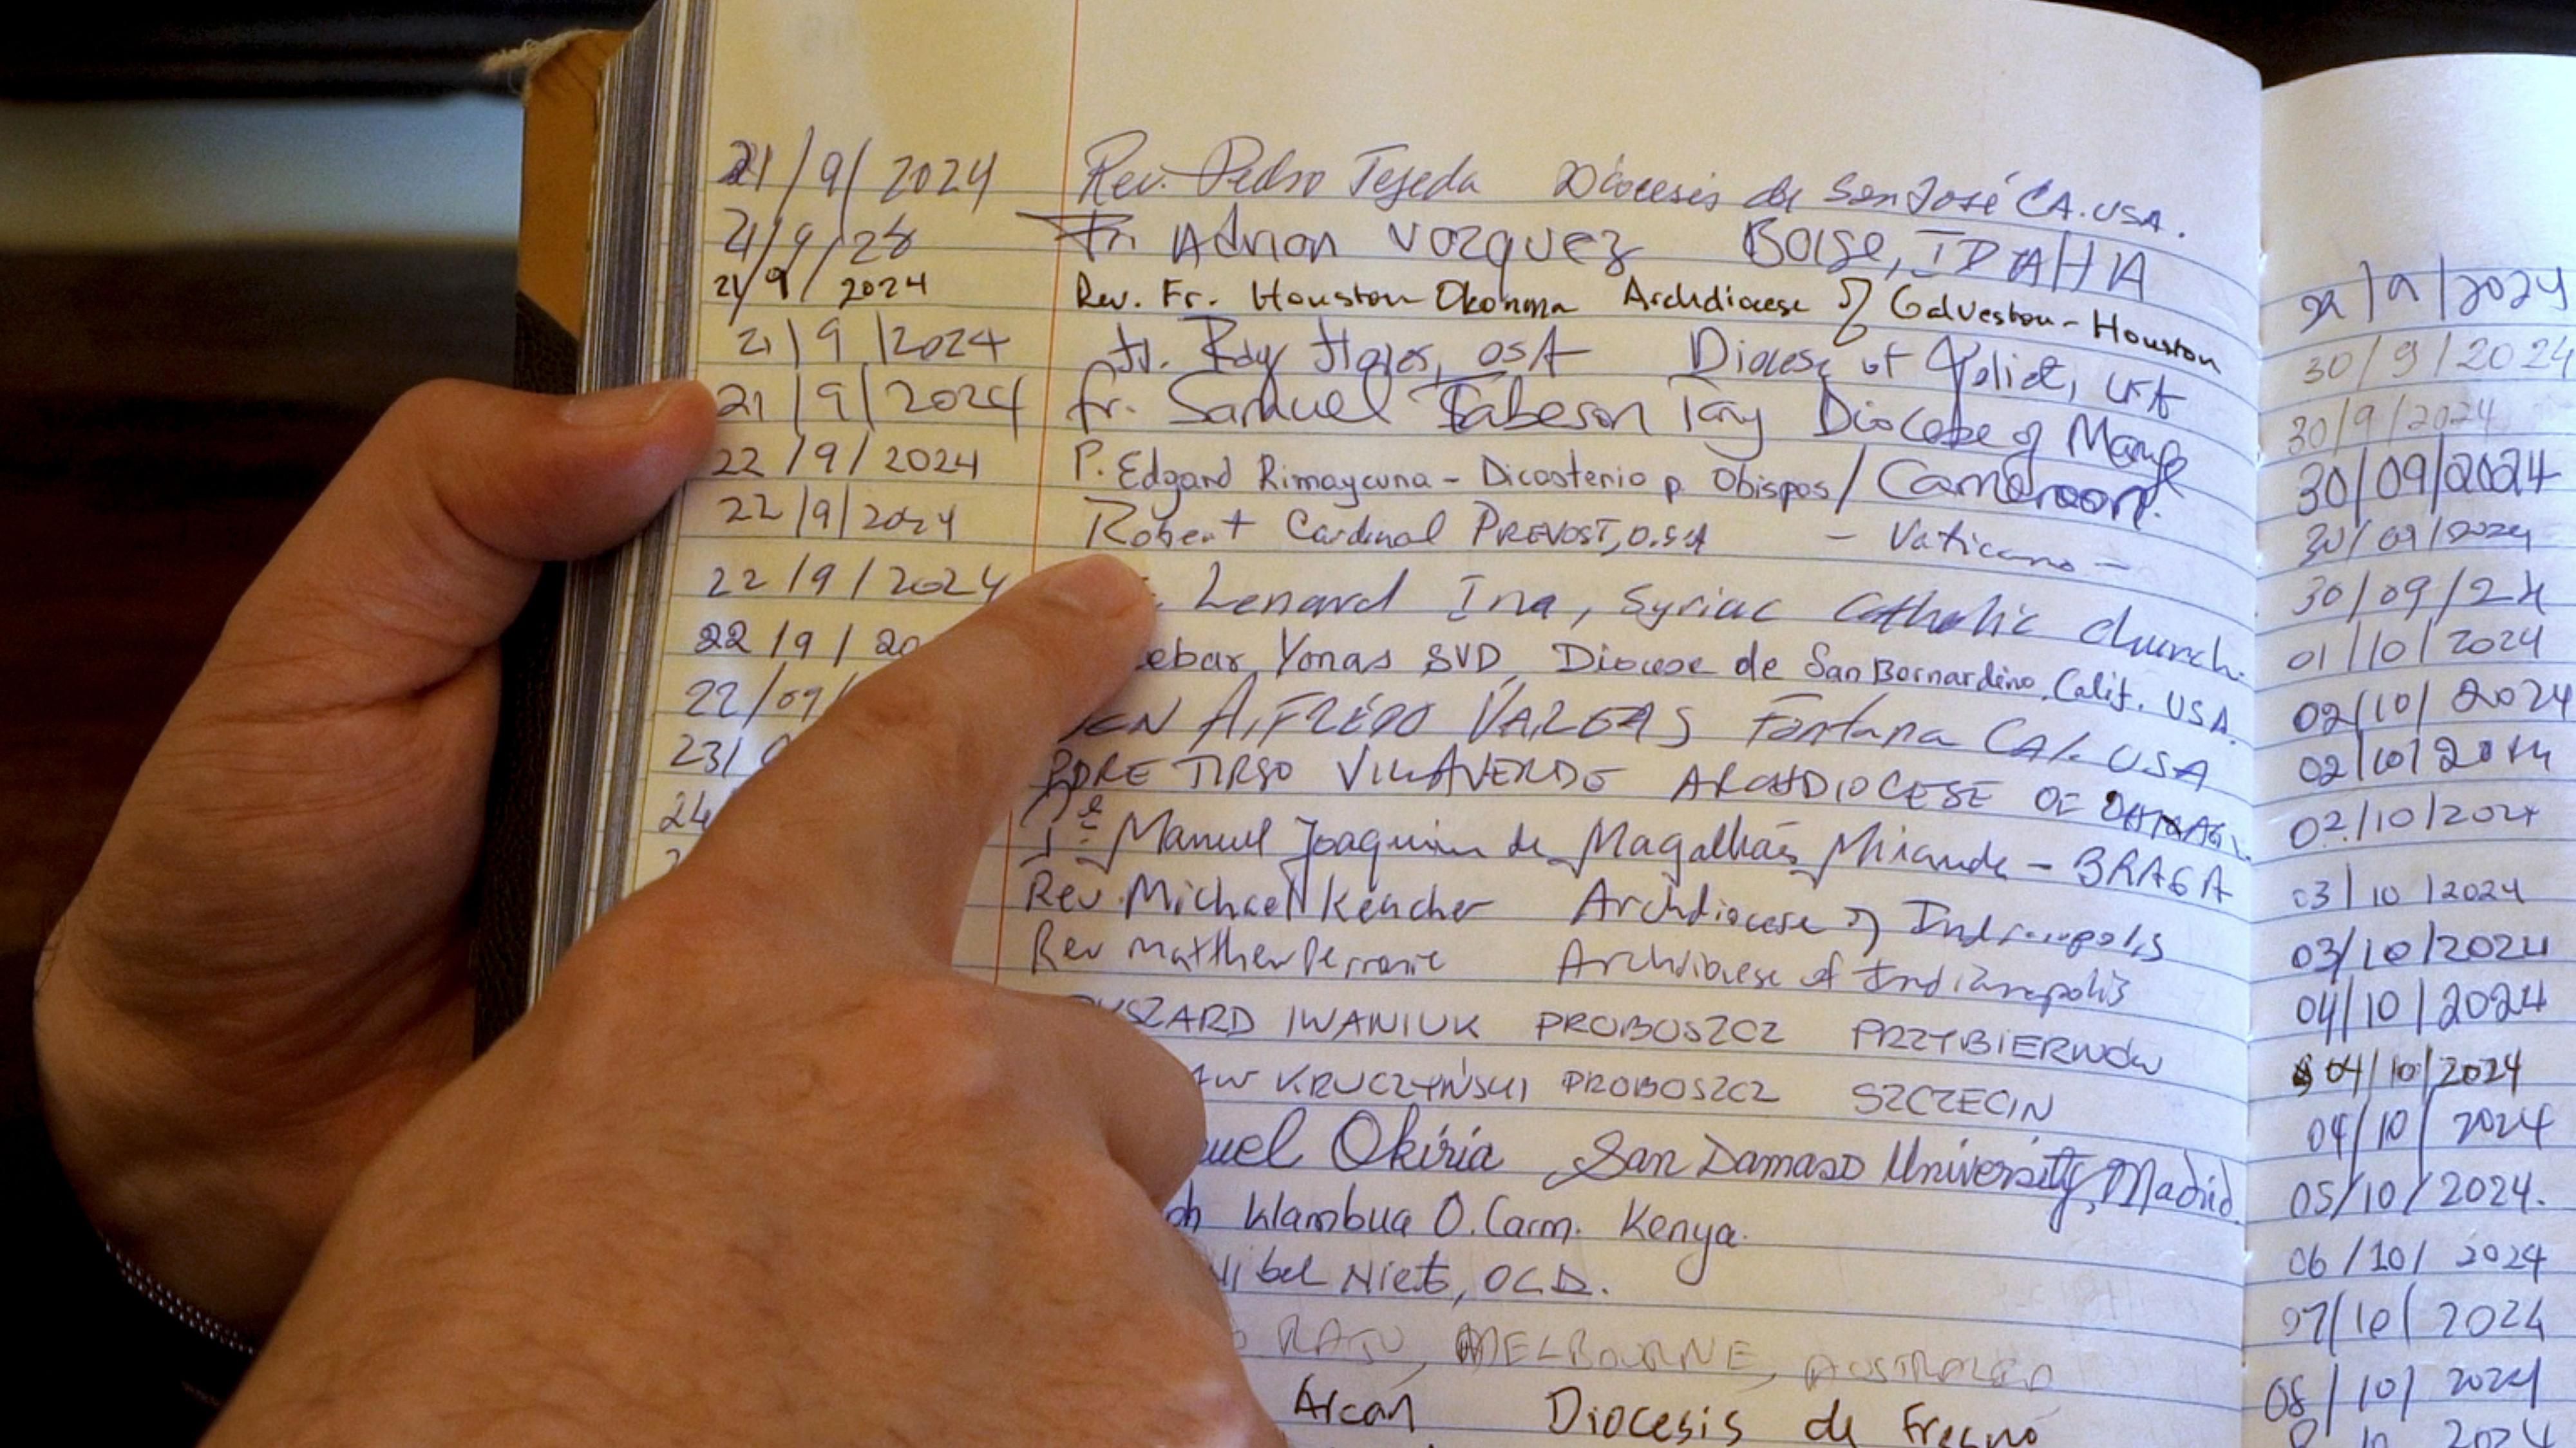 21/9/2024 Rev. Pedro Tejeda Diocesis de San José CA. USA.
21/9/28 Fr. Adrian Vazquez Boise, IDAHA
21/9/2024 Rev. Fr. Houston Okonma Archdiocese of Galveston-Houston
21/9/2024 Fr. Ray Flores, OSA Diocese of Joliet, USA
21/9/2024 fr. Samuel Tabeson Tay Diocese of Mamfe
22/9/2024 P. Edgard Rimaycuna - Dicasterio p. Obispos / Cameroon.
22/9/2024 Robert Cardinal PREVOST, O.S.A - Vaticano -
22/9/2024 Lenard Ina, Syriac Catholic church.
22/9/20 ebar Yonas SVD, Diocese de San Bernardino, Calif. USA.
22/09/ EN ALFREDO VARGAS Fontana CAL. USA
23/ PDRE TIRSO VILLAVERDE ARCHDIOCESE OF
24 Pe Manuel Joaquim de Magalhães Miranda - BRAGA
Rev. Michael Keucher Archdiocese of Indianapolis
Rev Matthew Perronie Archdiocese of Indianapolis
YSZARD IWANIUK PROBOSZCZ PRZYBIERNÓW
AW KRUCZYŃSKI PROBOSZCZ SZCZECIN
uel Okiria, San Damaso University, Madrid.
ph Wambua O.Carm. Kenya.
Nibel Niet, OCD.
RAJU, MELBOURNE, AUSTRALIA
Arcan Diocesis de Fresno
30/9/2024
30/9/2024
30/09/2024
30/09/2024
30/09/24
01/10/2024
02/10/2024
02/10/2024
02/10/2024
03/10/2024
03/10/2024
04/10/2024
04/10/2024
04/10/2024
05/10/2024.
06/10/2024
07/10/2024
08/10/2024
10 2024